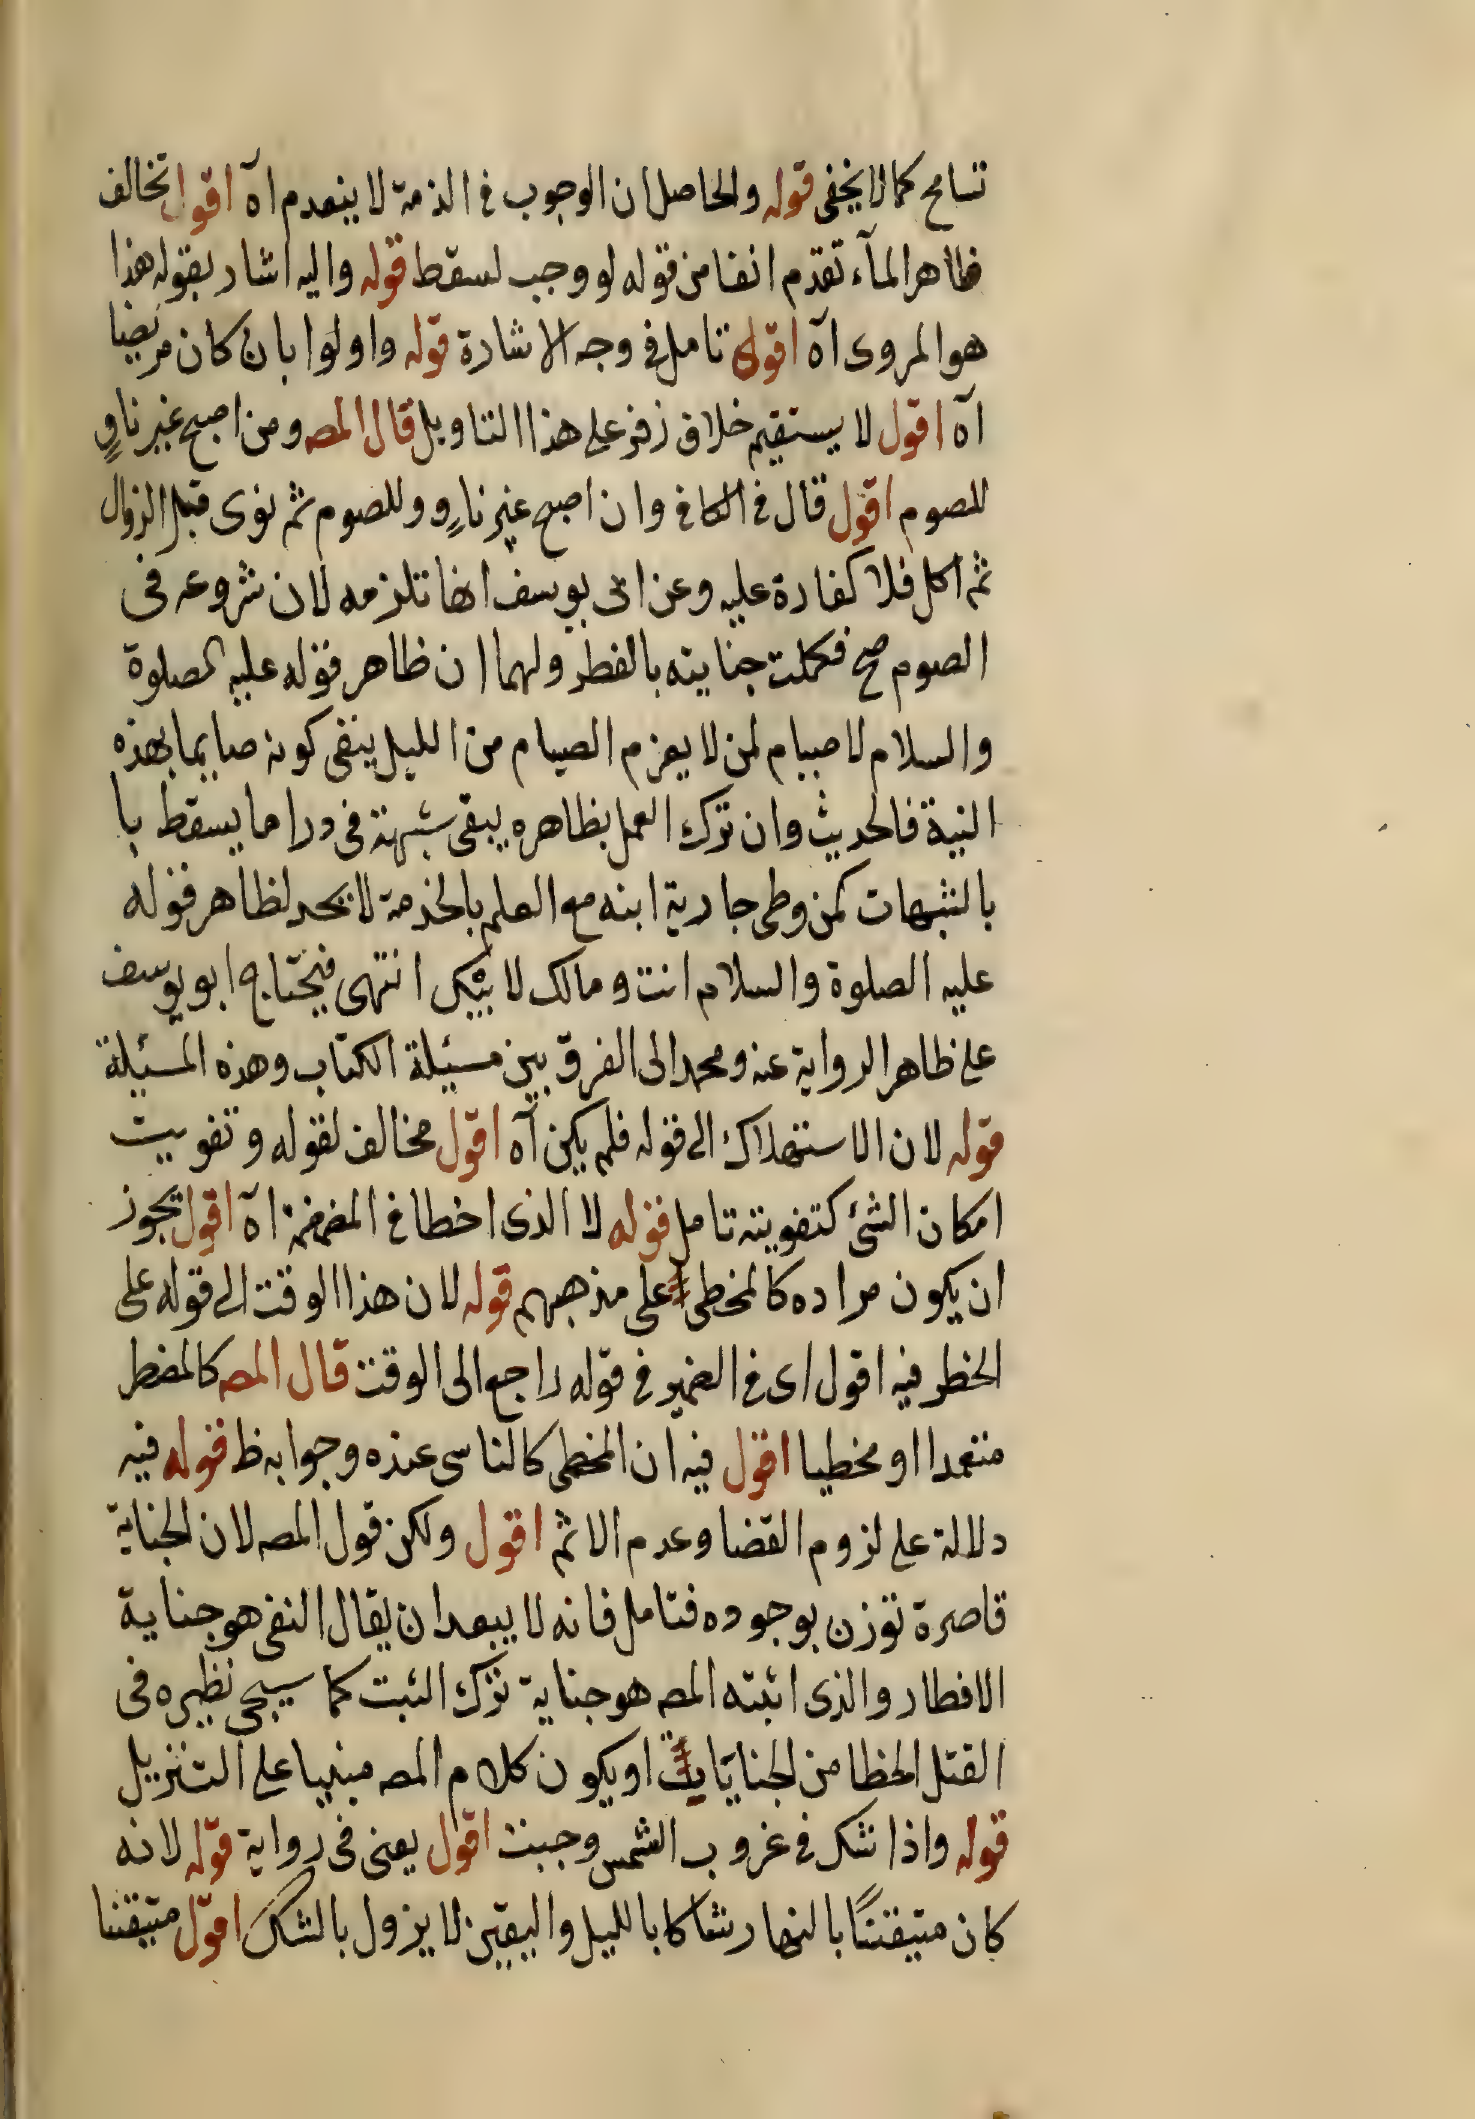 تسامح كما لا يخفى قوله والحاصل ان الوجوب فى الذمة لا ينعدم اه اقول تخالف
ظاهرا لمآء تقدم انفا من قوله لو وجب لسقط قوله واليه اشار بقوله هذا
هو المروى اه اقول تامل فى وجه الاشارة قوله واولوا بان كان مريضا
آه اقول لا يستقيم خلاف زفر على هذا التاويل قال المصـ ومن اصبح غير ناوٍ
للصوم اقول قال فى الكافى وان اصبح غير ناوٍ وللصوم ثم نوى قبل الزوال
ثم اكل فلا كفارة عليه وعن ابى يوسف انها تلزمه لان شروعه فى
الصوم صح فكملت جنايته بالفطر ولهما ان ظاهر قوله عليه الصلوة
والسلام لا صيام لمن لا يعزم الصيام من الليل ينفى كونه صايما بهذه
النية فالحديث وان ترك العمل بظاهره يبقى شبهة فى درا ما يسقط با
بالشبهات كمن وطى جارية ابنه مع العلم بالحرمة لا يحد لظاهر قوله
عليه الصلوة والسلام انت ومالك لا بيك انتهى فيحتاج ابو يوسف
على ظاهر الرواية عنه ومحمد الى الفرق بين مسئلة الكتاب وهذه المسئلة
قوله لان الاستهلاك الى قوله فلم يكن آه اقول مخالف لقوله وتفويت
امكان الشئ كتفويته تامل قوله لا الذى اخطا فى المضمضة اه اقول يجوز
ان يكون مراده كالمخطى على مذهبهم قوله لان هذا الوقت الى قوله على
الخطر فيه اقول اى فى الضمير فى قوله راجع الى الوقت قال المصـ كالمفطر
متعمدا او مخطيا اقول فيه ان المخطى كالناسى عنده وجوابه ظ قوله فيه
دلالة على لزوم القضا وعدم الاثم اقول ولكن قول المصـ لان الجناية
قاصرة توزن بوجوده فتامل فانه لا يبعد ان يقال النفى هو جناية
الافطار والذى اثبته المصـ هو جناية ترك التثبت كما سيجى نظيره فى
القتل الخطا من الجنايات او يكون كلام المصـ مبنيا على التنزيل
قوله واذا شك فى غروب الشمس وجبت اقول يعنى فى رواية قوله لانه
كان متيقنًا بالنهار شاكا بالليل واليقين لا يزول بالشك اقول متيقنا